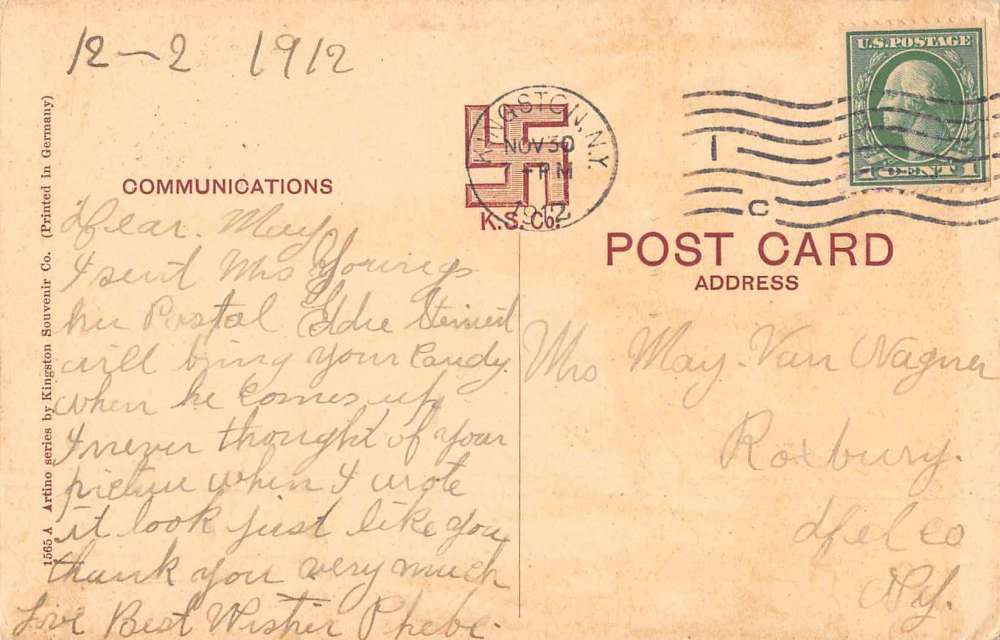 12-2 1912
1565 A Artino series by Kingston Souvenir Co. (Printed in Germany)
COMMUNICATIONS
Dear. May
I sent Mrs Youngs
her Postal Eddie
will bring your Candy
when he Comes up
I never thought of your
picture when I wrote
it look just like you
thank you very much
Love Best Wisher Phebe.
K.S.Co.
KINGSTON, N.Y.
NOV 30
PM
1912
1
C
U.S. POSTAGE
1 CENT 1
POST CARD
ADDRESS
Mrs May. Van Wagner
Roxbury.
Del co
N.y.